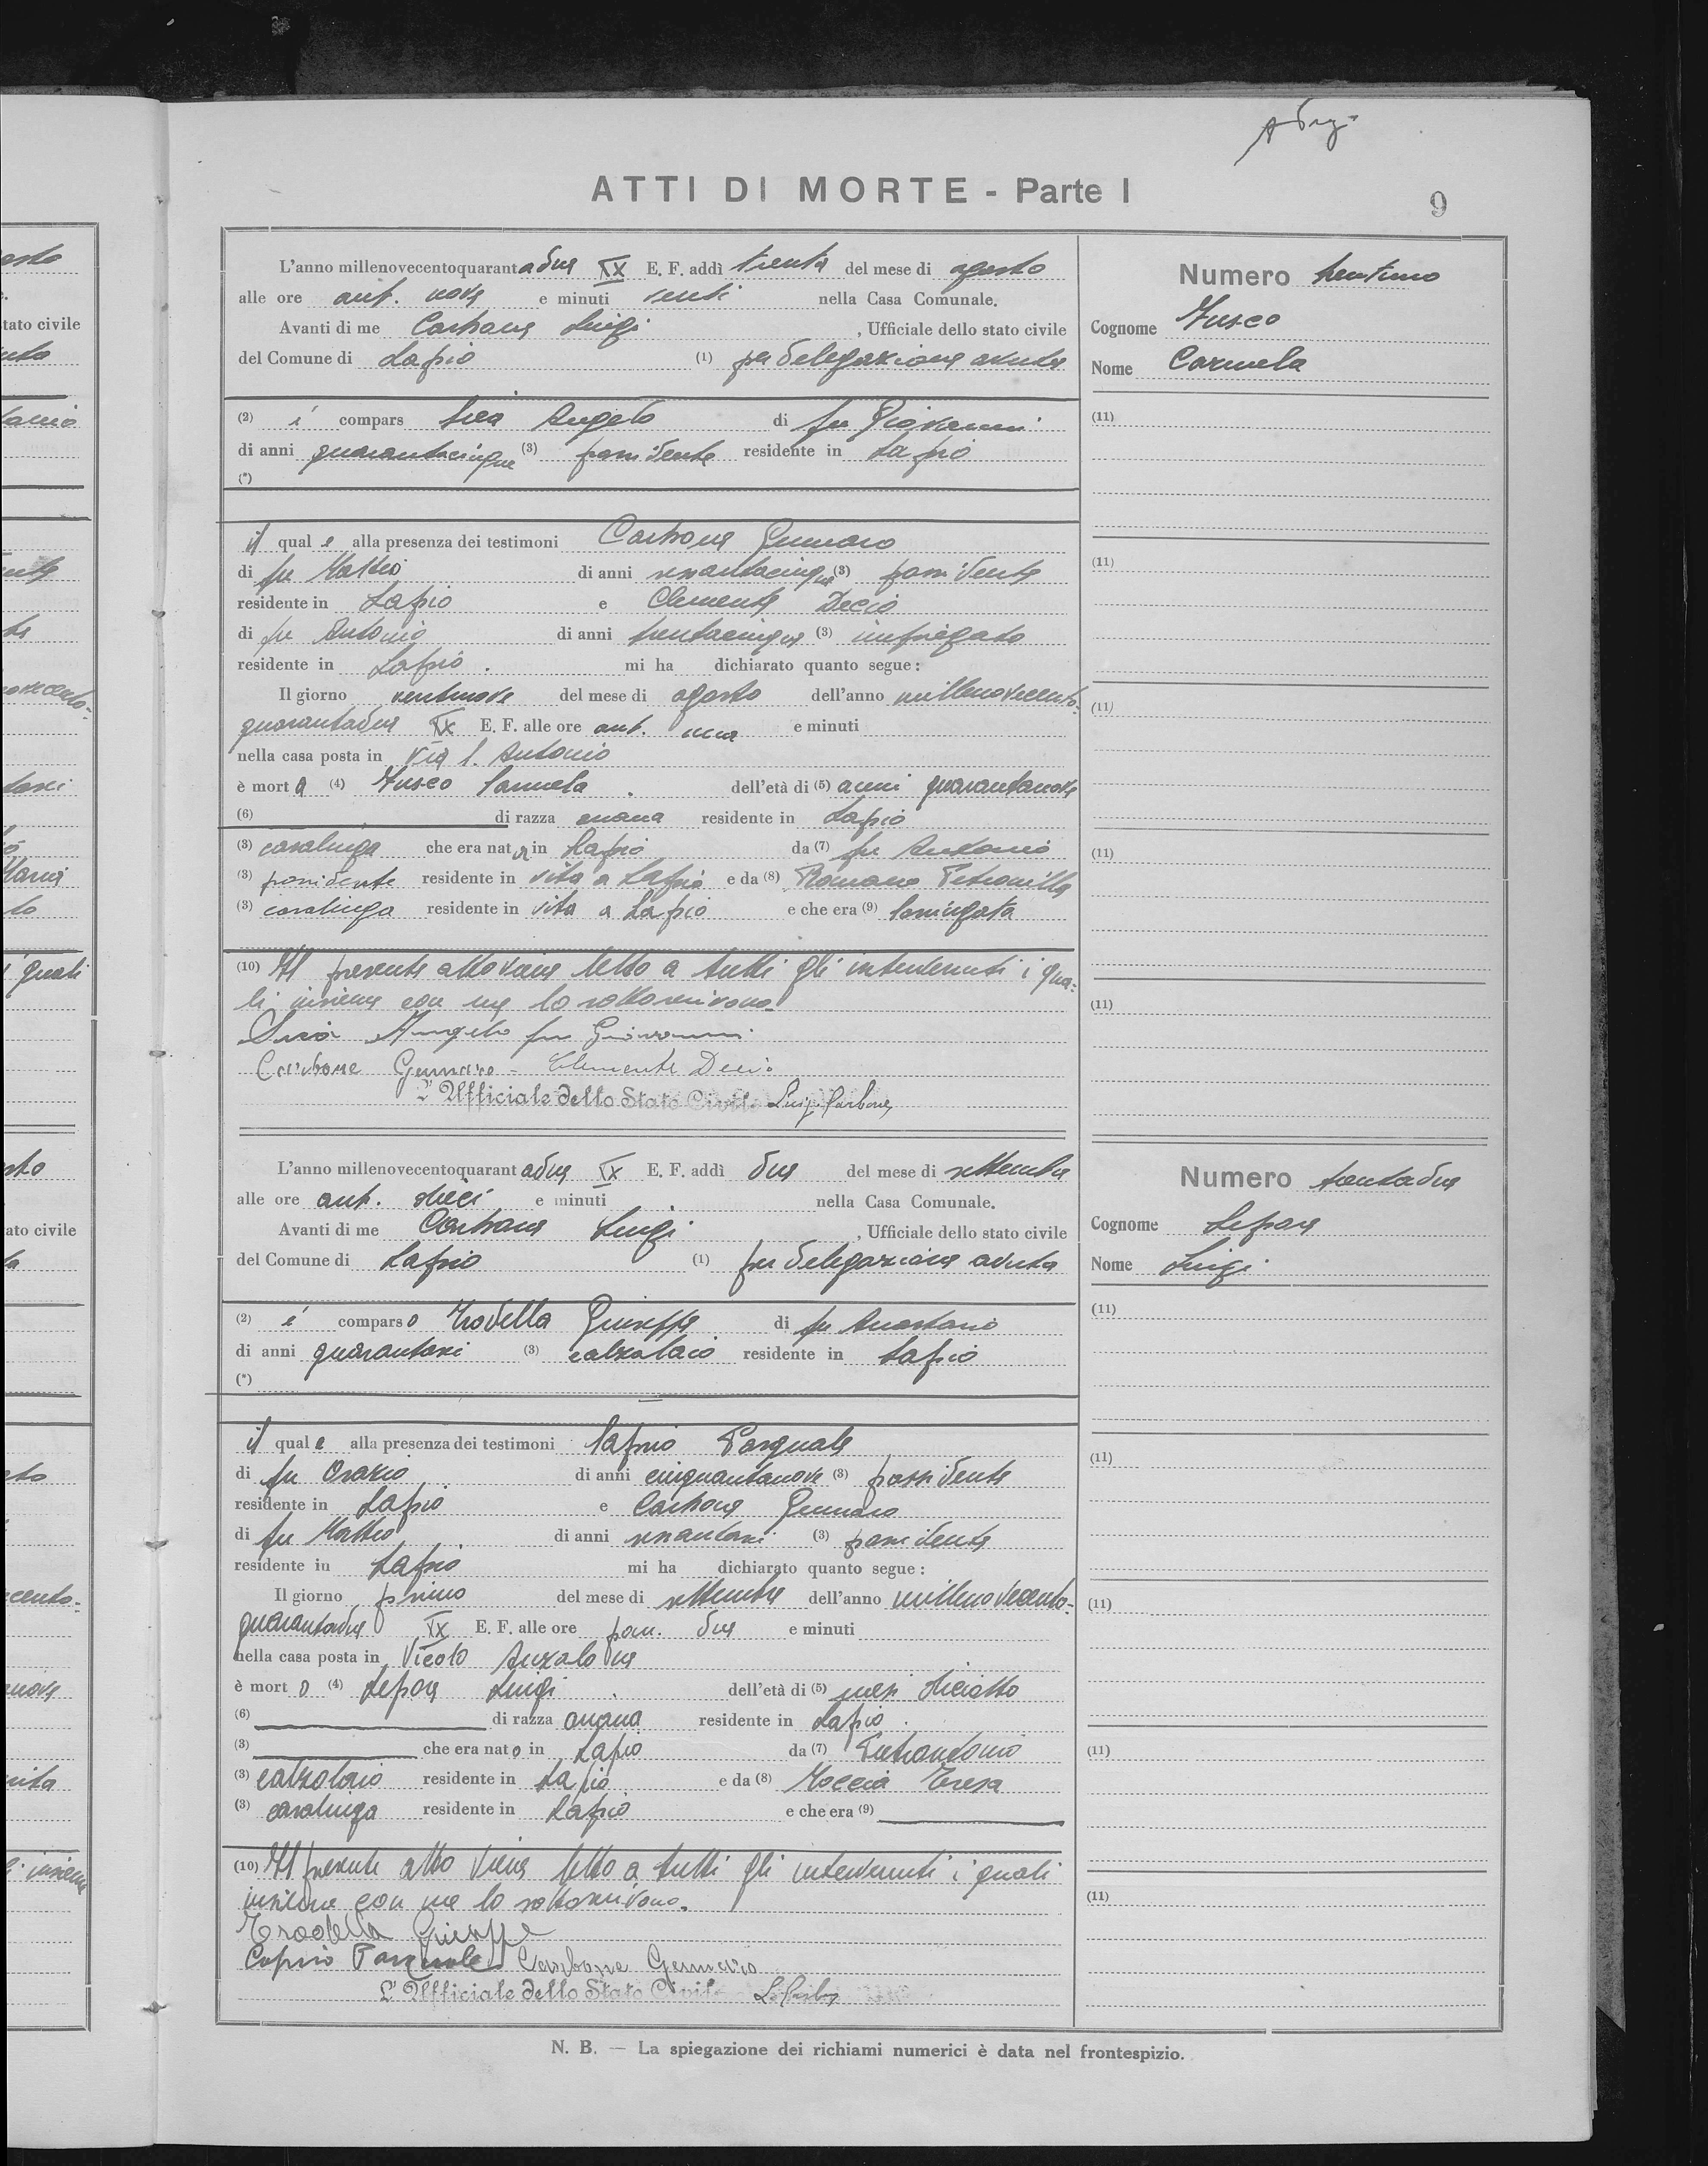 ATTI DI MORTE - Parte I
9
L'anno millenovecentoquarantadue XX E. F. addì trenta del mese di agosto
alle ore ant. nove e minuti venti nella Casa Comunale.
Avanti di me Carbone Luigi, Ufficiale dello stato civile
del Comune di Lapio (1) per delegazione avuta
(2) è compars Sica Angelo di fu Giovanni
di anni quarantacinque (3) possidente residente in Lapio
(*)
il quale alla presenza dei testimoni Carbone Gennaro
di fu Matteo di anni sessantacinque (3) possidente
residente in Lapio e Clemente Decio
di fu Antonio di anni trentacinque (3) impiegato
residente in Lapio. mi ha dichiarato quanto segue:
Il giorno ventinove del mese di agosto dell'anno millenovecento-
quarantadue XX E. F. alle ore ant. una e minuti
nella casa posta in Via S. Antonio
è morta (4) Fusco Carmela. dell'età di (5) anni quarantanove
(6) di razza ariana residente in Lapio
(3) casalinga che era nata in Lapio da (7) fu Antonio
(3) possidente residente in vita a Lapio e da (8) Romano Petronilla
(3) casalinga residente in vita a Lapio e che era (9) coniugata
(10) Il presente atto viene letto a tutti gli intervenuti i qua-
li insieme con me lo sottoscrivono.
Sica Angelo fu Giovanni
Carbone Gennaro - Clemente Decio
L'Ufficiale dello Stato Civile Luigi Carbone
Numero trentuno
Cognome Fusco
Nome Carmela
(11)
(11)
(11)
(11)
(11)
L'anno millenovecentoquarantadue XX E. F. addì due del mese di settembre
alle ore ant. dieci e minuti nella Casa Comunale.
Avanti di me Carbone Luigi, Ufficiale dello stato civile
del Comune di Lapio (1) per delegazione avuta
(2) è comparso Trodella Giuseppe di fu Anastasio
di anni quarantasei (3) calzolaio residente in Lapio
(*)
il quale alla presenza dei testimoni Caprio Pasquale
di fu Orazio di anni cinquantanove (3) possidente
residente in Lapio e Carbone Gennaro
di fu Matteo di anni sessantasei (3) possidente
residente in Lapio mi ha dichiarato quanto segue:
Il giorno primo del mese di settembre dell'anno millenovecento-
quarantadue XX E. F. alle ore pom. due e minuti
nella casa posta in Vicolo Anzalone
è morto (4) Lepore Luigi. dell'età di (5) mesi diciotto
(6) di razza ariana residente in Lapio.
(3) che era nato in Lapio da (7) Pietrantonio
(3) calzolaio residente in Lapio e da (8) Moccia Teresa
(3) casalinga residente in Lapio e che era (9)
(10) Il presente atto viene letto a tutti gli intervenuti i quali
insieme con me lo sottoscrivono.
Trodella Giuseppe
Caprio Pasquale Carbone Gennaro
L'Ufficiale dello Stato Civile L. Carbone
Numero trentadue
Cognome Lepore
Nome Luigi
(11)
(11)
(11)
(11)
(11)
N. B. — La spiegazione dei richiami numerici è data nel frontespizio.